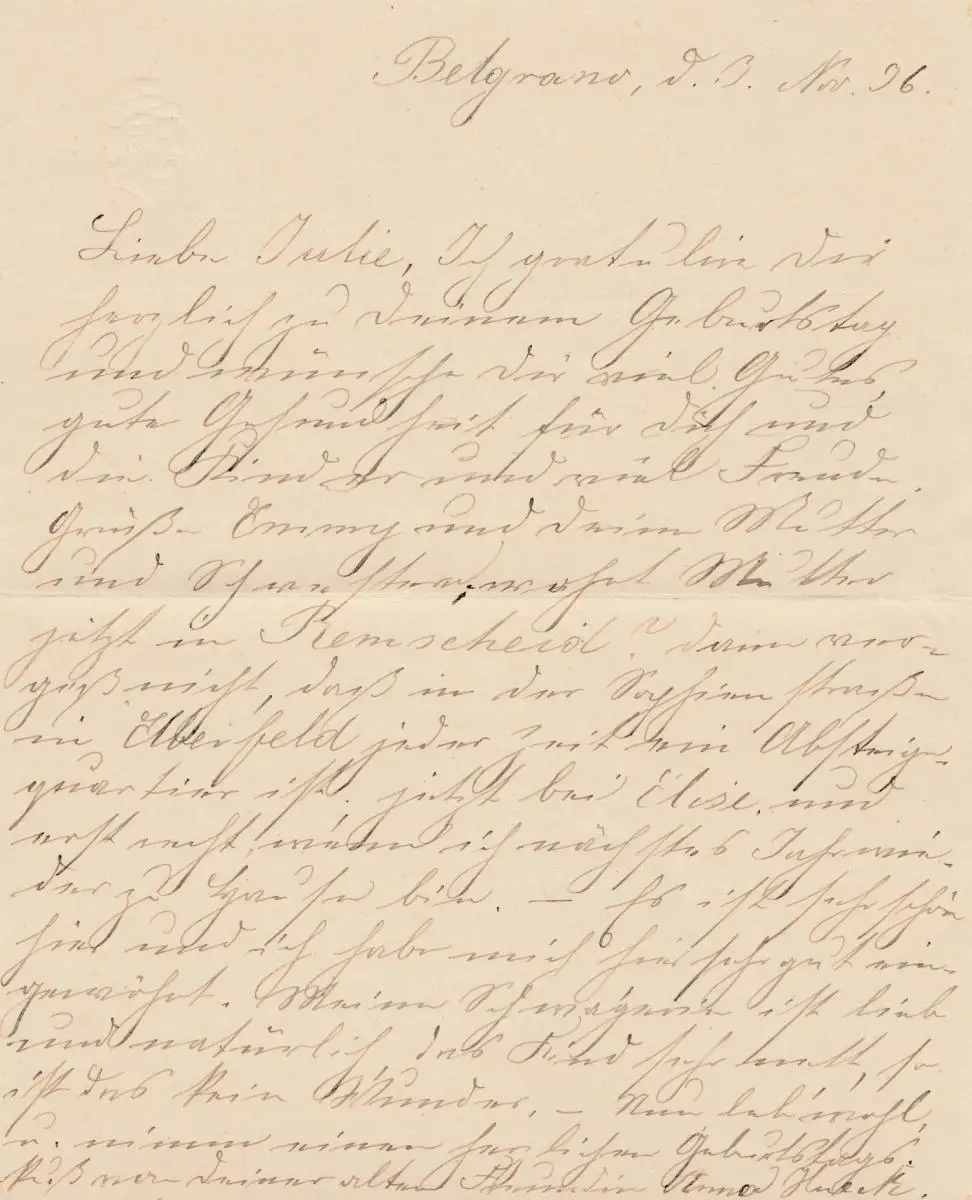 Belgrano, d. 3. Nov. 96.
Liebe Julie, Ich gratulire Dir
herzlich zu Deinem Geburtstag
und wünsche Dir viel Gutes,
gute Gesundheit für Dich und
die Kinder und viel Freude.
Grüße Emmy und Deine Mutter
und Schwestern, wohnt Mutter
jetzt in Remscheid? dann ver-
giß nicht, daß in der Sophienstraße
in Elberfeld jeder Zeit ein Absteige-
quartier ist. jetzt bei Elise. und
erst recht, wenn ich nächstes Jahr wie-
der zu Hause bin. — Es ist sehr schön
hier und ich habe mich hier sehr gut ein-
gewöhnt. Meine Schwägerin ist lieb
und natürlich, das Kind sehr nett, so
ist das kein Wunder. — Nun leb' wohl,
u. nimm einen herzlichen Geburtstags-
kuß von Deiner alten Freundin Anna